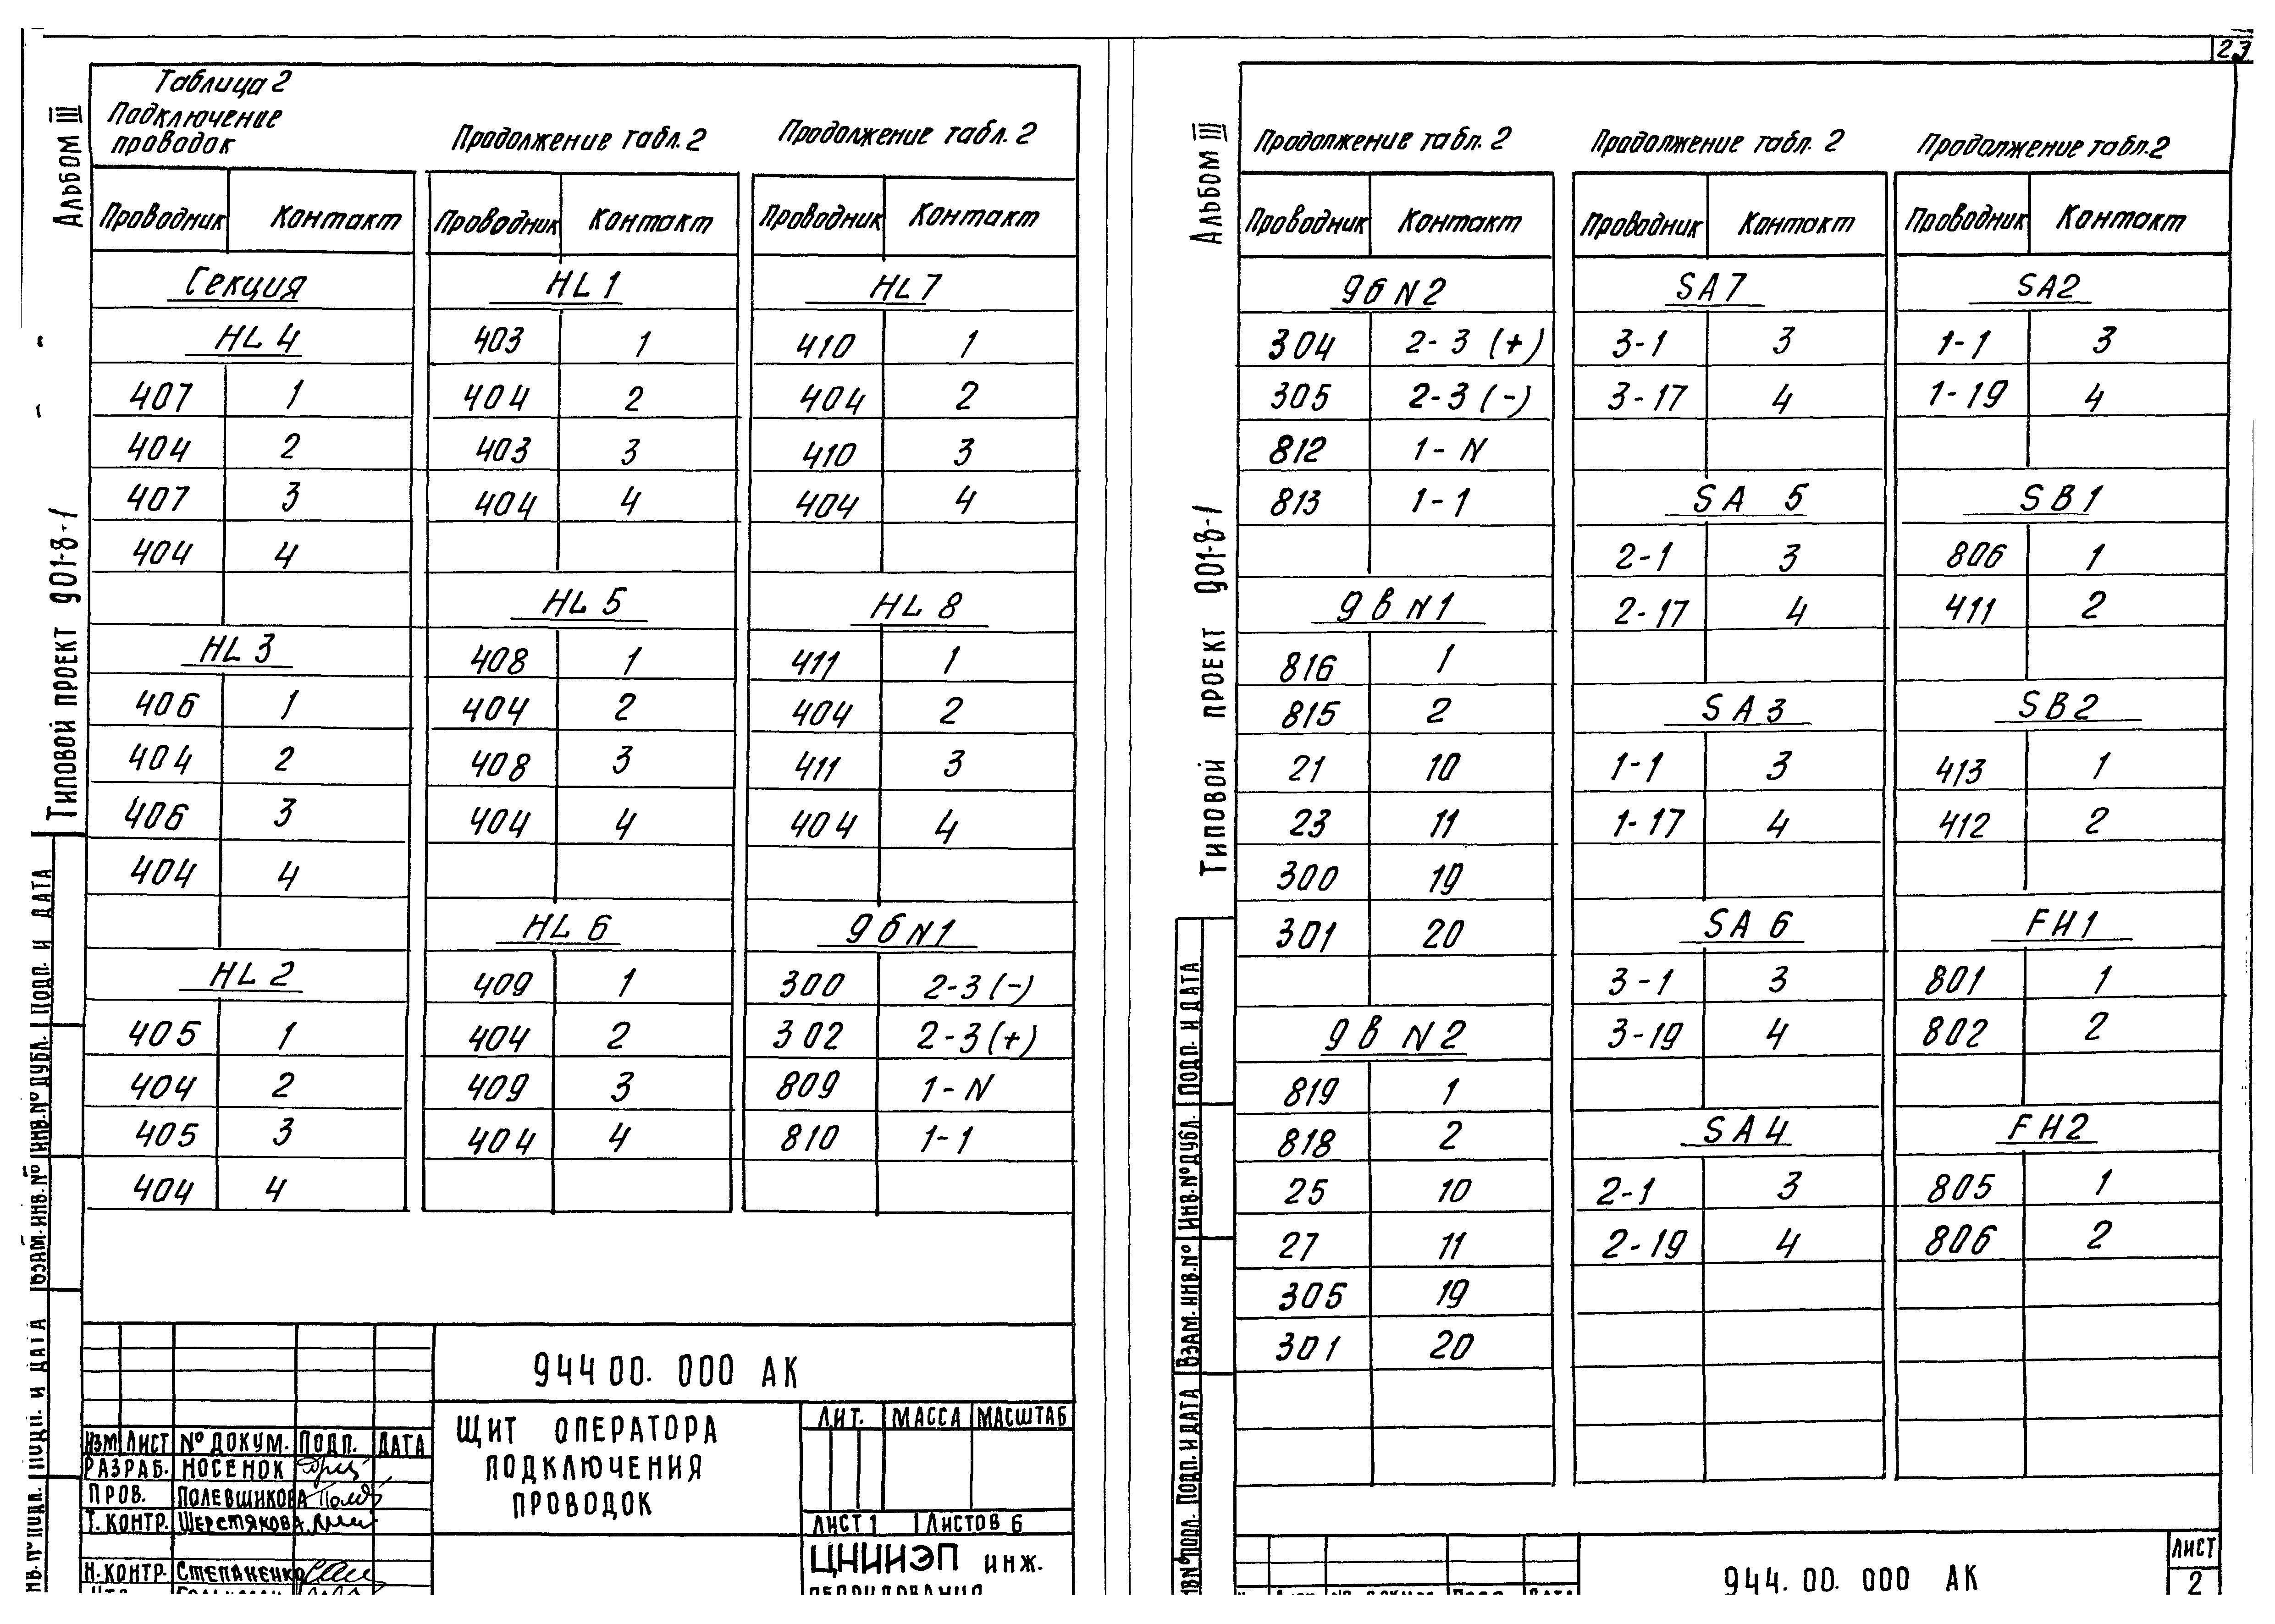 23
Альбом III
Типовой проект 901-8-1
Таблица 2
Подключение
проводок
Проводник Контакт
Секция
HL 4
407 1
404 2
407 3
404 4
HL 3
406 1
404 2
406 3
404 4
HL 2
405 1
404 2
405 3
404 4
Продолжение табл. 2
Проводник Контакт
HL 1
403 1
404 2
403 3
404 4
HL 5
408 1
404 2
408 3
404 4
HL 6
409 1
404 2
409 3
404 4
Продолжение табл. 2
Проводник Контакт
HL 7
410 1
404 2
410 3
404 4
HL 8
411 1
404 2
411 3
404 4
9б N1
300 2-3 (-)
302 2-3 (+)
809 1-N
810 1-1
ПОДП. И ДАТА
ИНВ. № ДУБЛ.
ВЗАМ. ИНВ. №
ПОДП. И ДАТА
94400. 000 АК
ЩИТ ОПЕРАТОРА
ПОДКЛЮЧЕНИЯ
ПРОВОДОК
ЛИТ. МАССА МАСШТАБ
ЛИСТ 1 ЛИСТОВ 6
ЦНИИЭП ИНЖ.
ОБОРУДОВАНИЯ
ИЗМ ЛИСТ № ДОКУМ. ПОДП. ДАТА
РАЗРАБ. НОСЕНОК
ПРОВ. ПОЛЕВЩИКОВА
Т. КОНТР. ШЕРСТЯКОВА
Н. КОНТР. СТЕПАНЕНКО
Альбом III
Типовой проект 901-8-1
Продолжение табл. 2
Проводник Контакт
9б N2
304 2-3 (+)
305 2-3 (-)
812 1-N
813 1-1
9в N1
816 1
815 2
21 10
23 11
300 19
301 20
9в N2
819 1
818 2
25 10
27 11
305 19
301 20
Продолжение табл. 2
Проводник Контакт
SA7
3-1 3
3-17 4
SA 5
2-1 3
2-17 4
SA3
1-1 3
1-17 4
SA 6
3-1 3
3-19 4
SA4
2-1 3
2-19 4
Продолжение табл.2
Проводник Контакт
SA2
1-1 3
1-19 4
SB1
806 1
411 2
SB2
413 1
412 2
FH1
801 1
802 2
FH2
805 1
806 2
ПОДП. И ДАТА
ИНВ. № ДУБЛ.
ВЗАМ. ИНВ. №
ПОДП. И ДАТА
944. 00. 000 АК
ЛИСТ
2